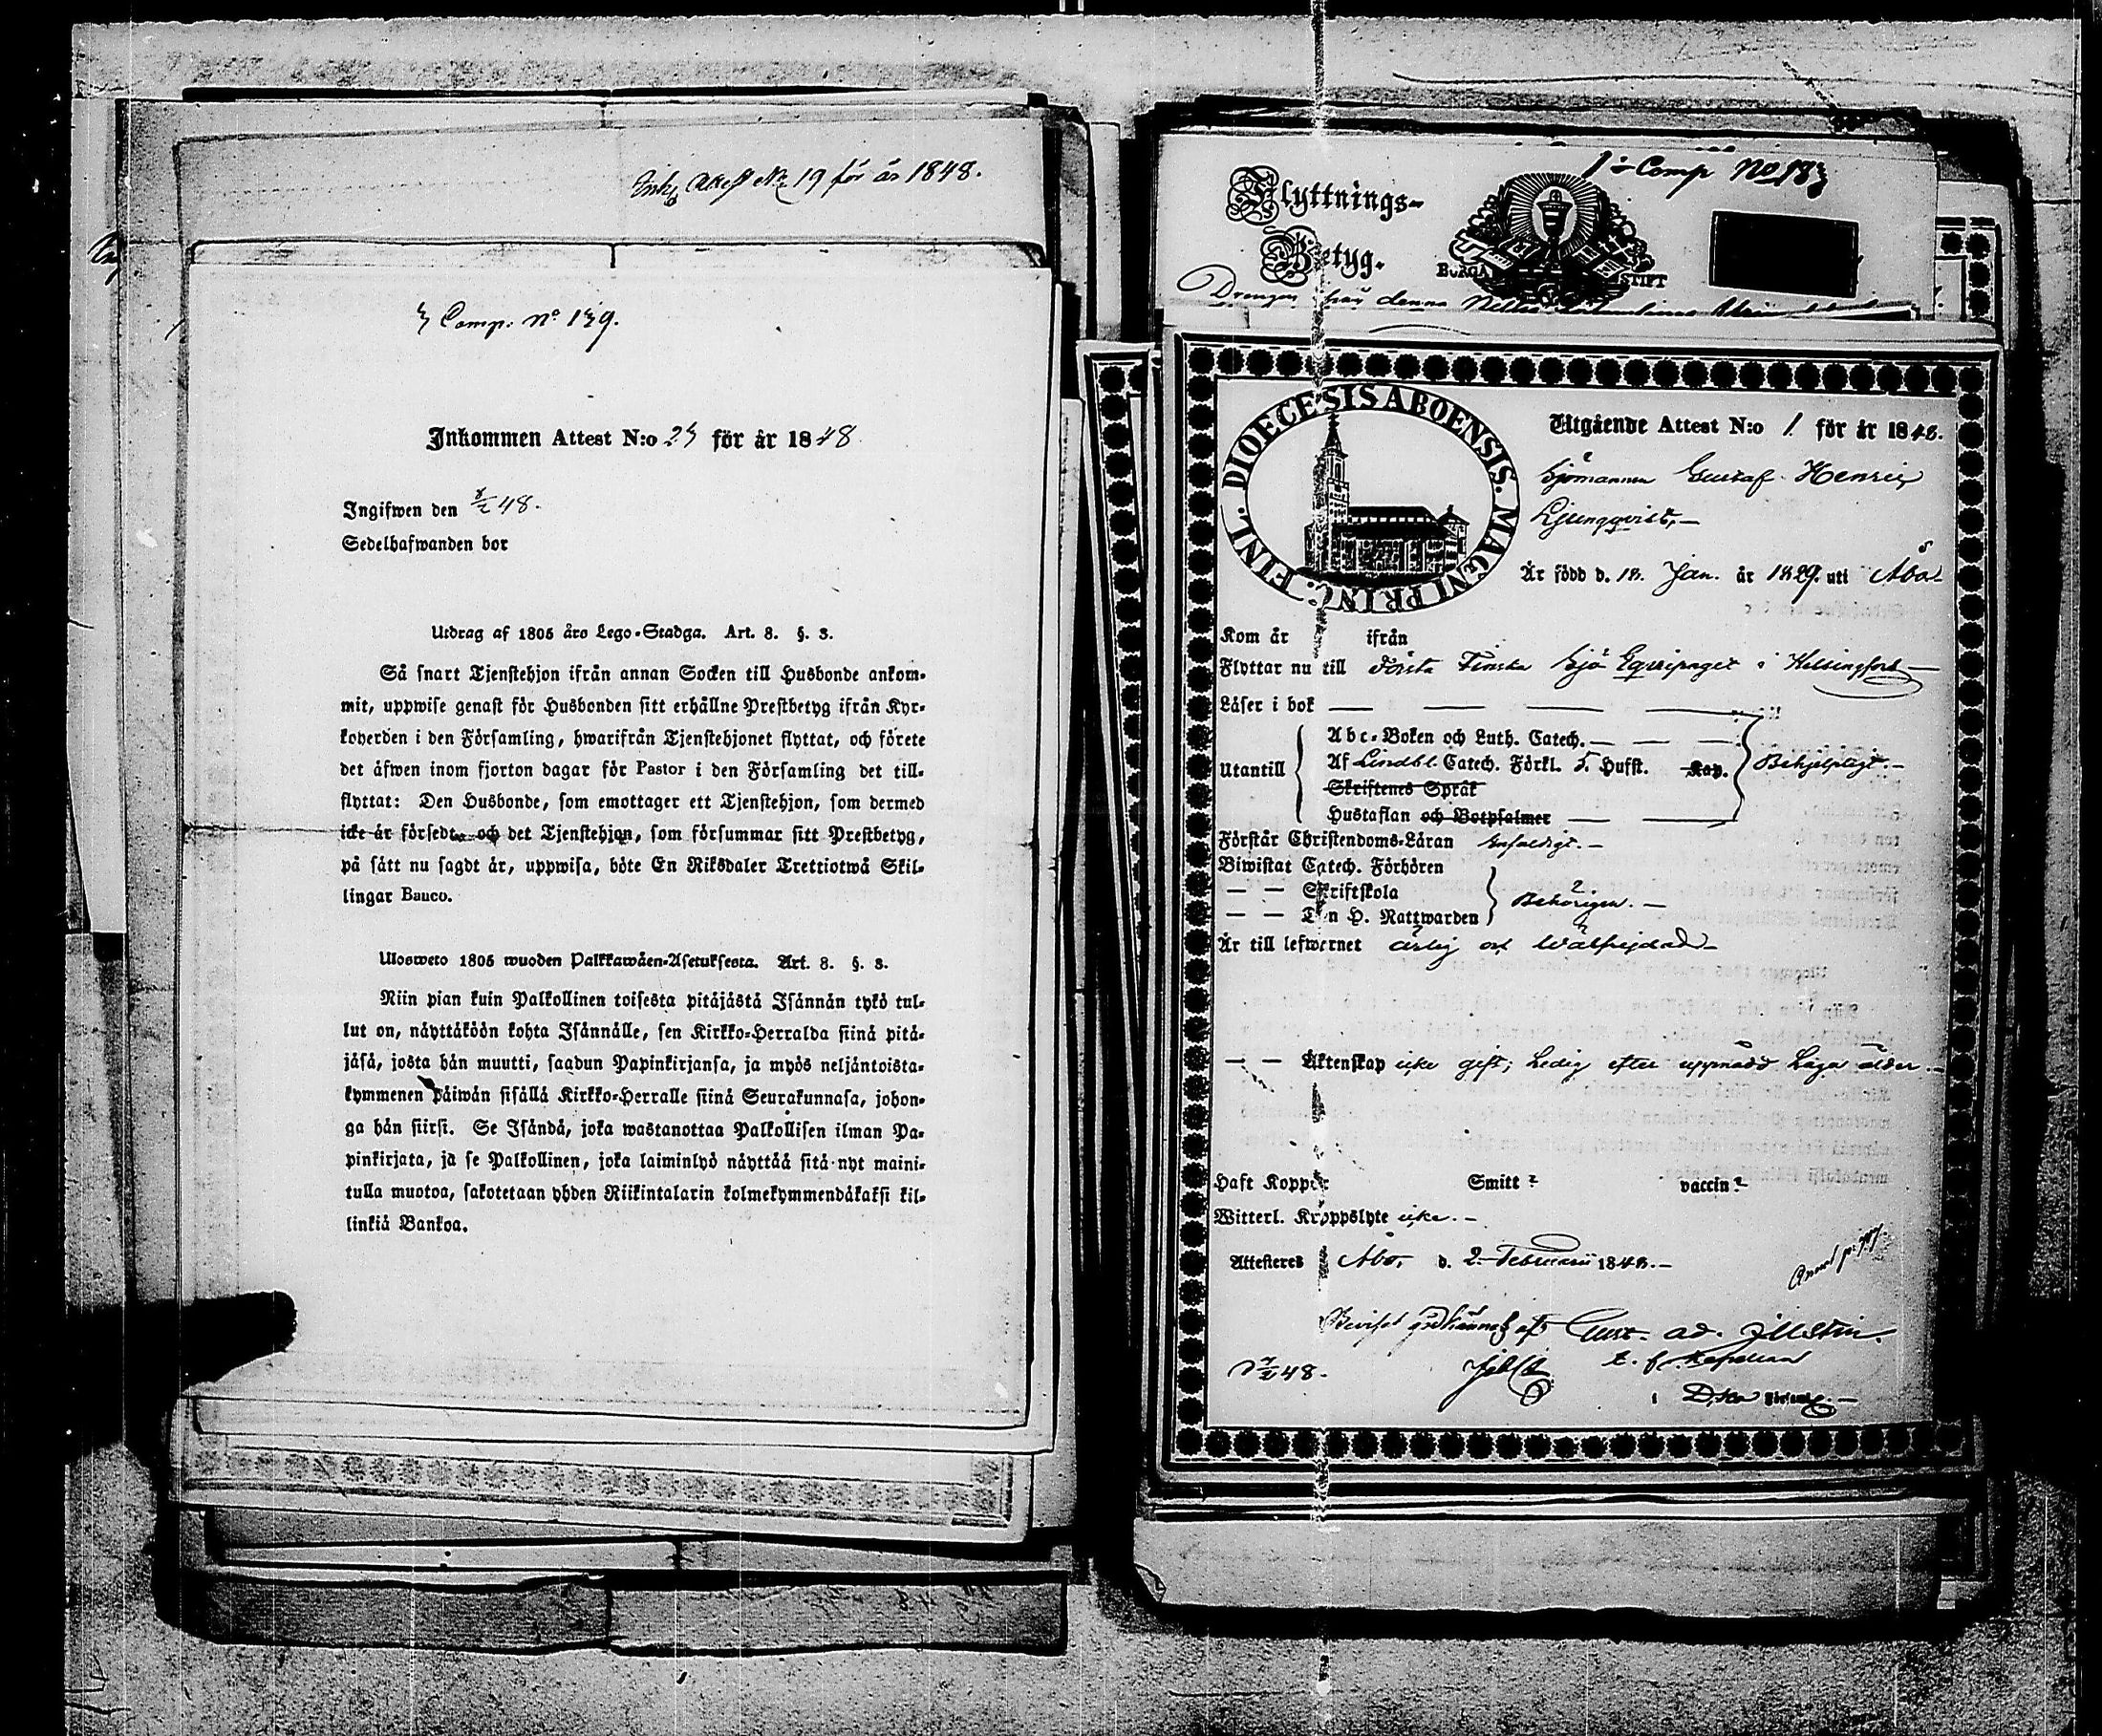 Attest No 19 för år 1848.
Comp: No 139.
Inkommen Attest N:o 23 för år 1848
Ingifwen den 8/2 48.
Sedelhafwanden bor
Utdrag af 1805 års Lego-Stadga. Art. 8. §. 3.
Så snart Tjenstehjon ifrån annan Socken till Husbonde ankom-
mit, uppwise genast för Husbonden sitt erhållne Prestbetyg ifrån Kyr-
koherden i den Församling, hwarifrån Tjenstehjonet flyttat, och förete
det äfwen inom fjorton dagar för Pastor i den Församling det till-
flyttat: Den Husbonde, som emottager ett Tjenstehjon, som dermed
icke är försedt, och det Tjenstehjon, som försummar sitt Prestbetyg,
på sätt nu sagdt är, uppwisa, böte En Riksdaler Trettiotwå Skil-
lingar Banco.
Ulosweto 1805 wuoden Palkkawäen-Asetuksesta. Art. 8. §. 3.
Niin pian kuin Palkollinen toisesta pitäjästä Isännän tykö tul-
lut on, näyttäköön kohta Isännälle, sen Kirkko-Herralda siinä pitä-
jäsä, josta hän muutti, saadun Papinkirjansa, ja myös neljäntoista-
kymmenen päiwän sisällä Kirkko-Herralle siinä Seurakunnasa, johon-
ga hän siirsi. Se Isändä, joka wastanottaa Palkollisen ilman Pa-
pinkirjata, ja se Palkollinen, joka laiminlyö näyttää sitä nyt maini-
tulla muotoa, sakotetaan yhden Riikintalarin kolmekymmendäkaksi kil-
linkiä Bankoa.
1:a Comp No 183
Flyttnings-
Betyg.
BORGÅ STIFT
Drengen från denna
DIOECESIS ABOENSIS. MAGNI PRINC. FINL.
Utgående Attest N:o 1. för år 1848.
Sjömannen Gustaf Henric
Ljungqvist,
Är född d. 18. Jan. år 1829. uti Åbo
Kom år ifrån
Flyttar nu till Första Finska Sjö Equipaget i Helsingfors
Läser i bok
Abc-Boken och Luth. Catech.
Utantill Af Lindbl. Catech. Förkl. 5. Hufst. Kap. Behjelpligt.
Skriftenes Språk
Hustaflan och Botpsalmer
Förstår Christendoms-Läran enfaldigt.
Biwistat Catech. Förhören
— — Skriftskola
Behörigen.
— — Den H. Nattwarden
Är till lefwernet ärlig och wälfrejdad
— — Äktenskap icke gift; Ledig efter uppnådd laga ålder.
Haft Koppor Smitt? vaccin?
Witterl. Kroppslyte icke.
Attesteres Åbo, d. 2 Februarii 1848.
Beviset godkännes af Gust. Ad.
t. f. Kapellan
48.
i D:sko Församl.